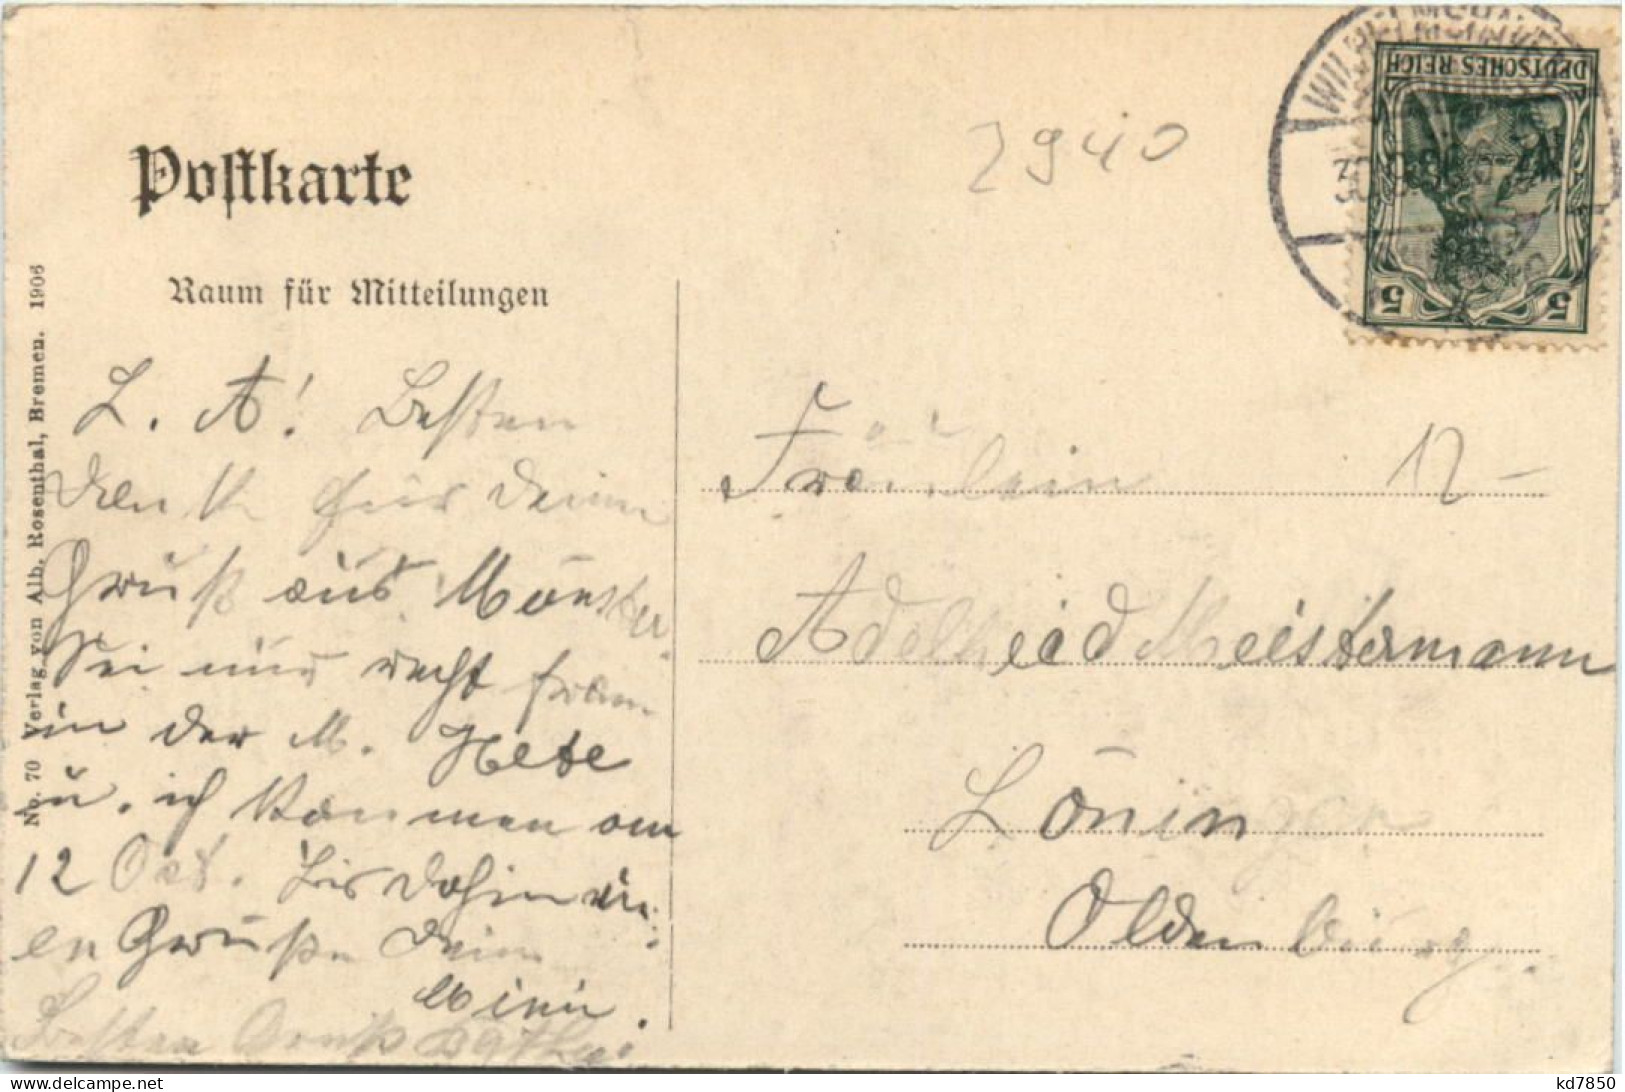 Postkarte
Raum für Mitteilungen
No. 70 Verlag von Alb. Rosenthal, Bremen. 1906
L. A! Besten
Dank für deinen
Gruß aus Münster.
Sei nur recht fromm
in der M. Hete
u. ich kommen am
12 Oct. Bis dahin
en Grüße Deine
Mimi.
Besten Gruß
2940
DEUTSCHES REICH
5 5
Fräulein
12-
Adelheid Meistermann
Löningen
Oldenburg.
kd7850